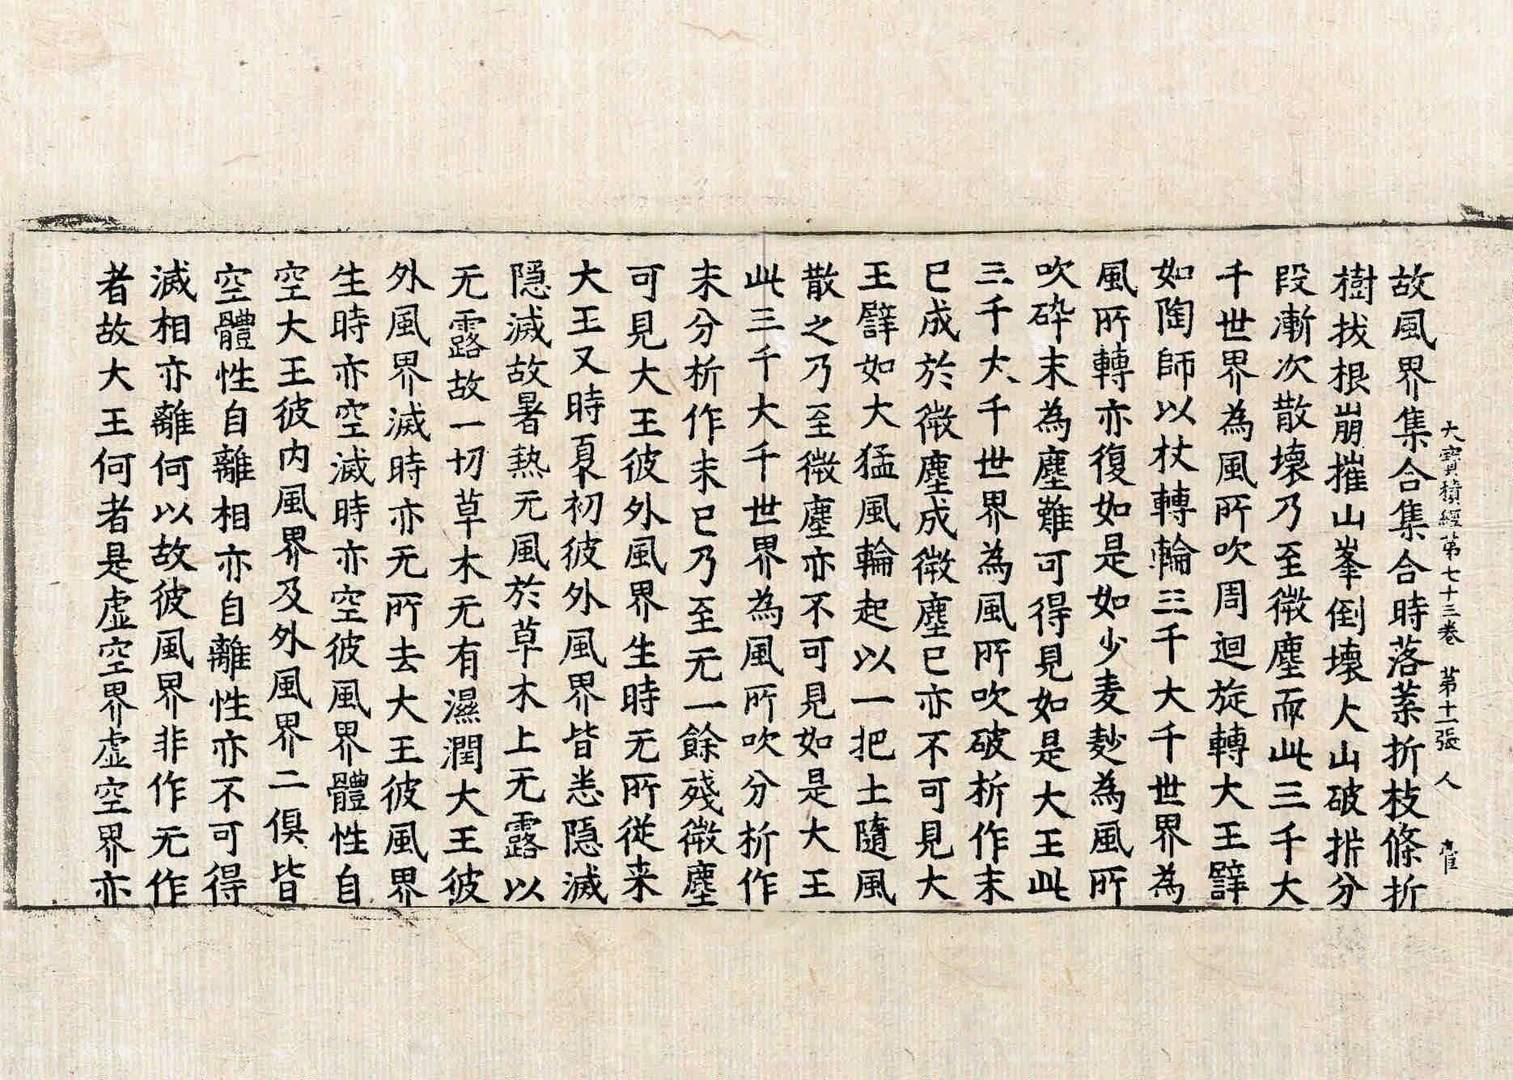 大寶積經第七十三卷 第十二張 人
故風界集合集合時落葉折枝條折
樹拔根崩摧山峯倒壞大山破拆分
段漸次散壞乃至微塵而此三千大
千世界為風所吹周迴旋轉大王譬
如陶師以杖轉輪三千大千世界為
風所轉亦復如是如少麦麨為風所
吹碎末為塵難可得見如是大王此
三千大千世界為風所吹破析作末
已成於微塵成微塵已亦不可見大
王譬如大猛風輪起以一把土隨風
散之乃至微塵亦不可見如是大王
此三千大千世界為風所吹分析作
末分析作末已乃至无一餘殘微塵
可見大王彼外風界生時无所從来
大王又時夏初彼外風界皆悉隱滅
隱滅故暑熱无風於草木上无露以
无露故一切草木无有濕潤大王彼
外風界滅時亦无所去大王彼風界
生時亦空滅時亦空彼風界體性自
空大王彼内風界及外風界二俱皆
空體性自離相亦自離性亦不可得
滅相亦離何以故彼風界非作无作
者故大王何者是虛空界虛空界亦